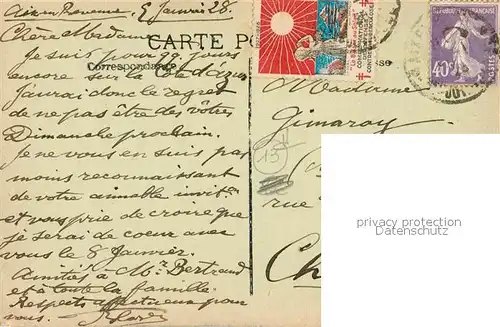 Aix en Provence, 5 Janvier 28
Chère Madame
CARTE PO
Correspondance
Je suis pour 8 jours
encore sur la Côte d'Azur
J'aurai donc le regret
de ne pas être des vôtres
Dimanche prochain.
Je ne vous en suis pas
moins reconnaissant
de votre aimable invit.
et vous prie de croire que
je serai de coeur avec
vous le 8 Janvier.
Amitiés à Mr Bertrand
et à toute la famille.
Respects affectueux pour
vous.
RÉPUBLIQUE FRANÇAISE
40c
POSTES
esse
Madame
15
rue
Ch
privacy protection
Datenschutz